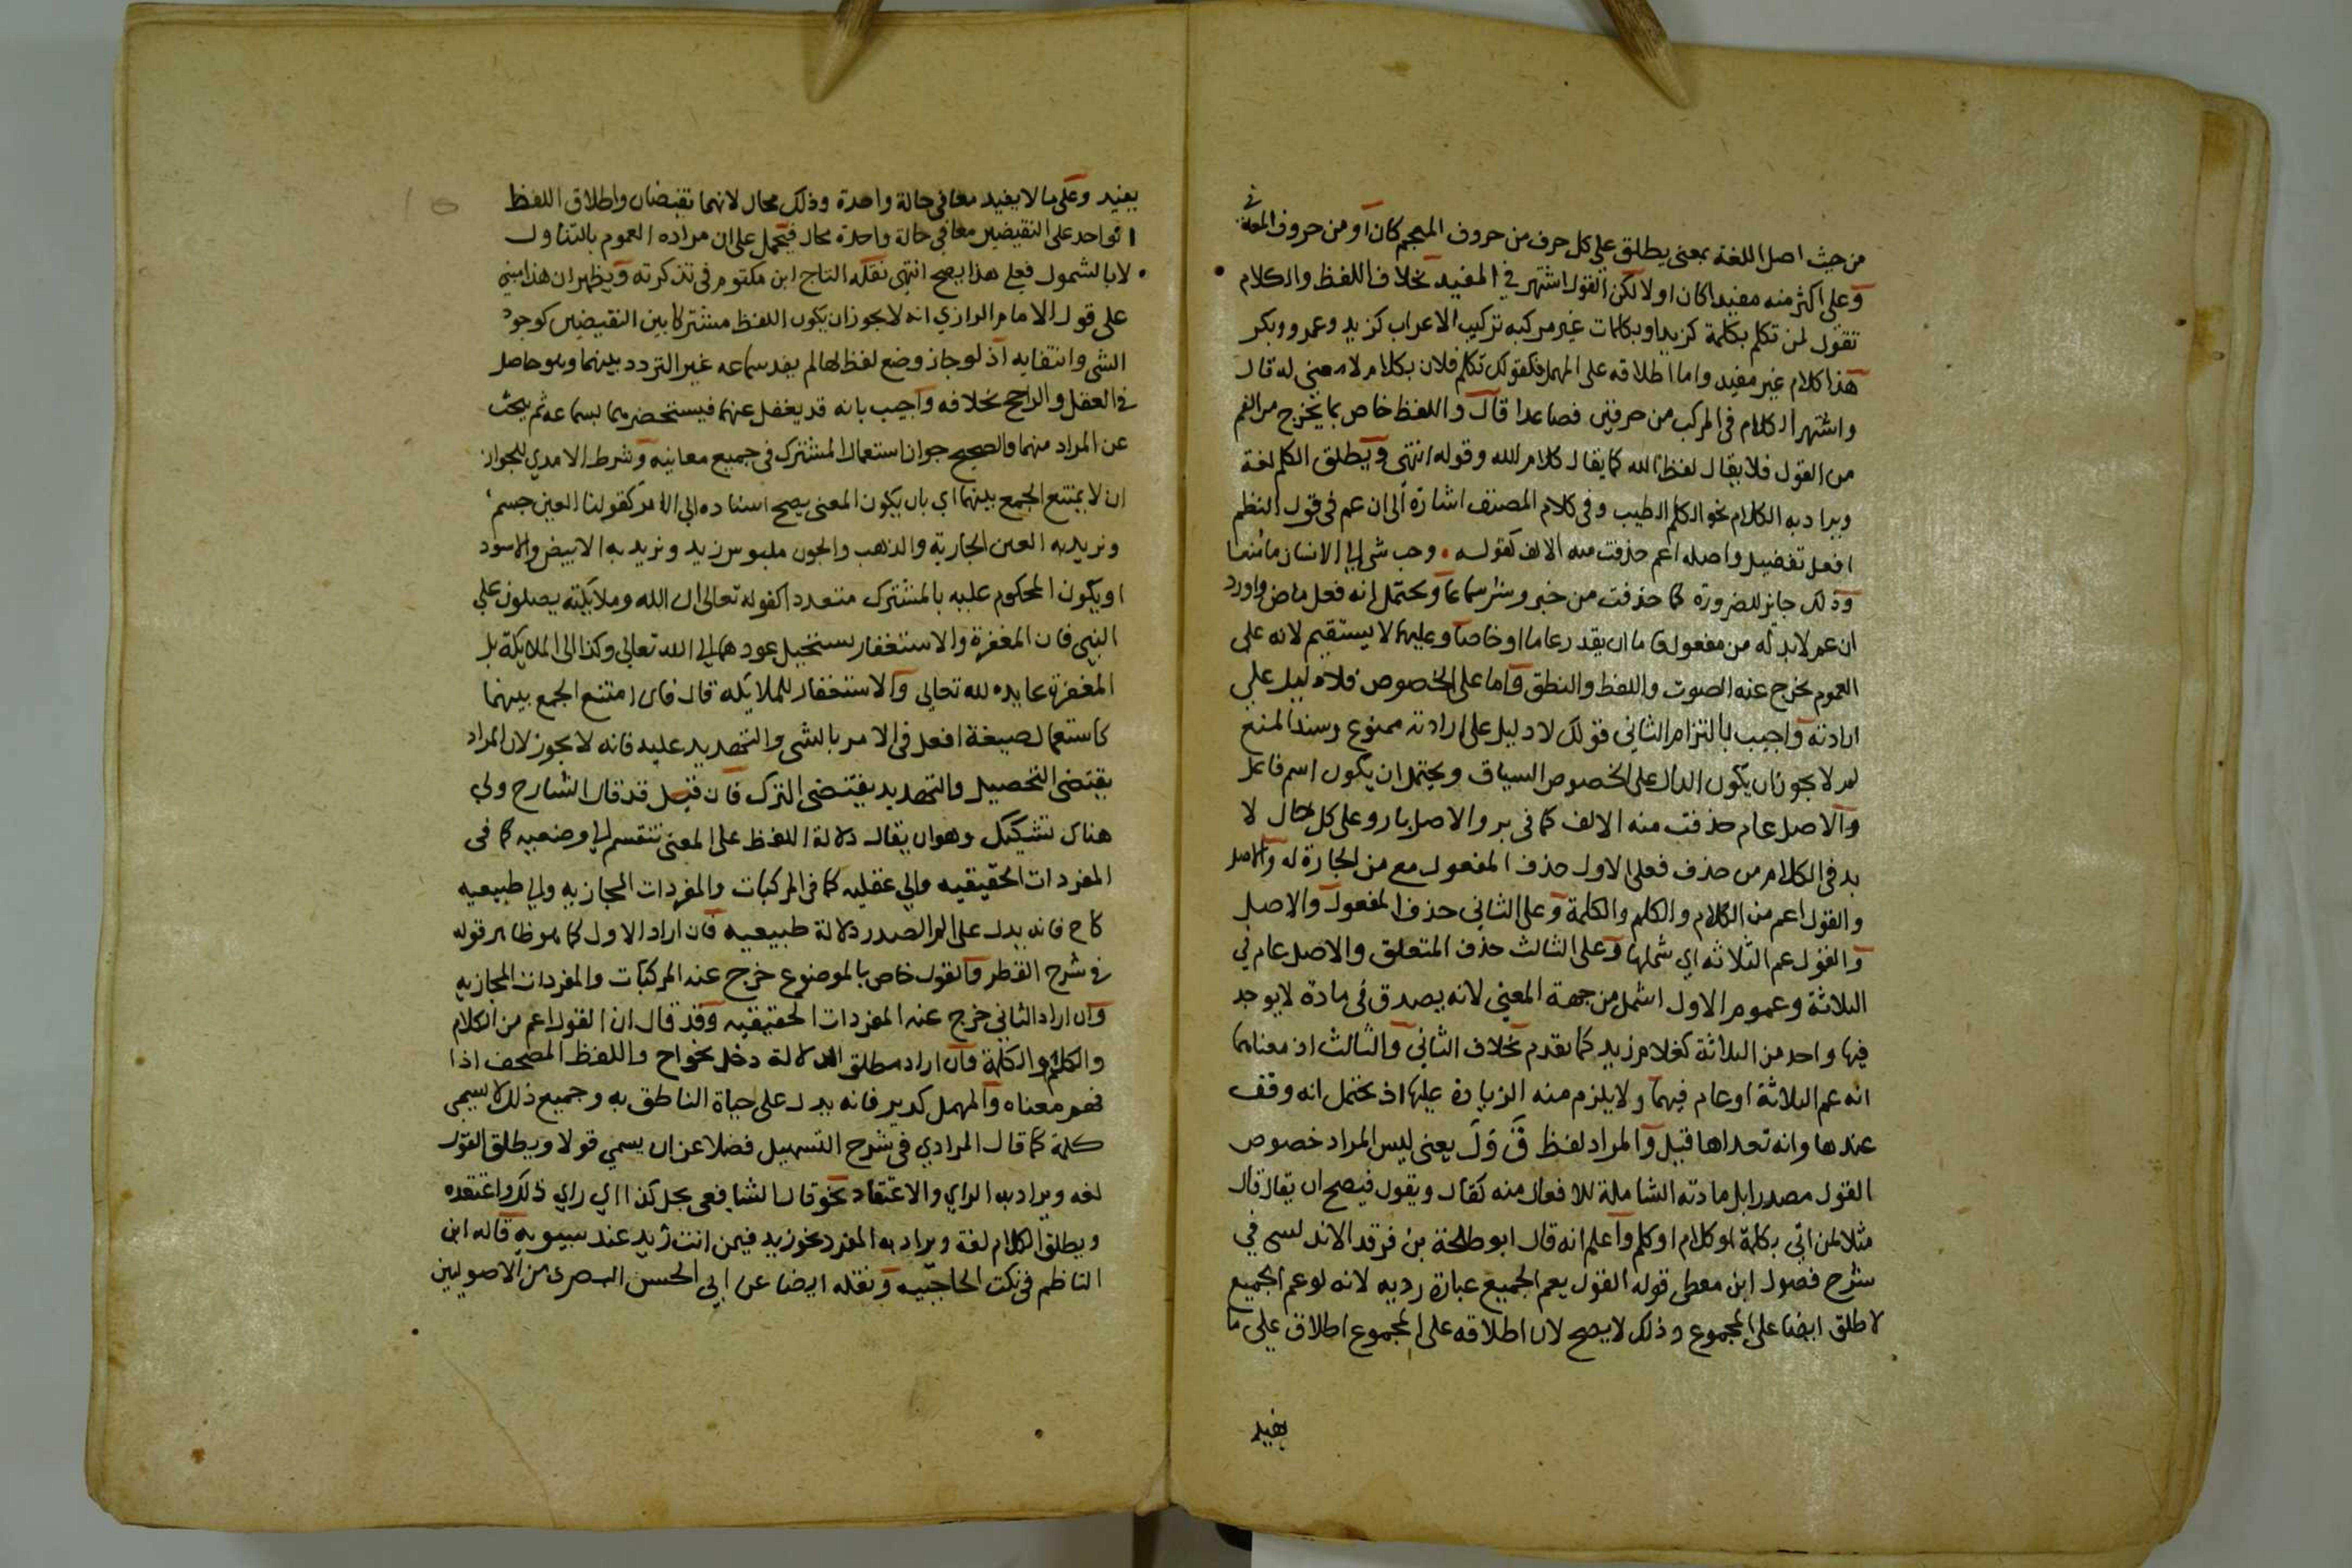 من حيث اصل اللغة بمعنى يطلق على كل حرف من حروف المعجم كان او من حروف المعاني
وعلى اكثر منه مفيدا كان او لا لكن القول اشتهر في المفيد بخلاف اللفظ والكلام
تقول لمن تكلم بكلمة كزيد او بكلمات غير مركبه تركيب الاعراب كزيد وعمرو وبكر
هذا كلام غير مفيد واما اطلاقه على المهمل فكقولك تكلم فلان بكلام لا معنى له قال
واشتهر الكلام في المركب من حرفين فصاعدا قال واللفظ خاص بما يخرج من الفم
من القول فلا يقال لفظ الله كما يقال كلام الله وقوله انتهى ويطلق الكلم لغة
ويراد به الكلام نحو الكلم الطيب وفي كلام المصنف اشارة الى ان عم في قول النظم
افعل تفضيل واصله اعم حذفت منه الالف كقوله • وحب شي الى الانسان ما منعا
وذلك جايز للضرورة كما حذفت من خير وشر سماعا ويحتمل انه فعل ماض واورد
ان عم لا بد له من مفعول فاما ان يقدر عاما او خاصا وعليهما لا يستقيم لانه على
العموم يخرج عنه الصوت واللفظ والنطق واما على الخصوص فلا دليل على
ارادته واجيب بالتزام الثاني قولك لا دليل على ارادته ممنوع وسند المنع
لم لا يجوز ان يكون الدال على الخصوص السياق ويحتمل ان يكون اسم فاعل
والاصل عام حذفت منه الالف كما في بر والاصل بار وعلى كل حال لا
بد في الكلام من حذف فعلى الاول حذف المفعول مع من الجارة له والاصل
والقول اعم من الكلام والكلم والكلمة وعلى الثاني حذف المفعول والاصل
والقول عم الثلاثه اي شملها وعلى الثالث حذف المتعلق والاصل عام في
الثلاثة وعموم الاول اشمل من جهة المعنى لانه يصدق في مادة لا يوجد
فيها واحد من الثلاثة كغلام زيد كما تقدم بخلاف الثاني والثالث اذ معناهما
انه عم الثلاثة او عام فيهما ولا يلزم منه الزيادة عليها اذ يحتمل انه وقف
عندها وانه تعداها قيل والمراد لفظ ق و ل يعنى ليس المراد خصوص
القول مصدرا بل مادته الشاملة للافعال منه كقال ويقول فيصح ان يقال قال
مثلا لمن اتى بكلمة او كلام او كلم واعلم انه قال ابو طلحة بن فرقد الاندلسى في
شرح فصول ابن معطى قوله القول يعم الجميع عبارة رديه لانه لو عم الجميع
لا طلق ايضا على المجموع وذلك لا يصح لان اطلاقه على المجموع اطلاق على ما
يفيد
يفيد وعلى ما لا يفيد معا في حالة واحدة وذلك محال لانهما نقيضان واطلاق اللفظ
الواحد على النقيضين معا في حالة واحدة محال فيحمل على ان مراده العموم بالتناول
لا بالشمول فعلى هذا يصح انتهى نقله التاج ابن مكتوم في تذكرته ويظهر ان هذا مبني
على قول الامام الرازي انه لا يجوز ان يكون اللفظ مشتركا بين النقيضين كوجود
الشي وانتفايه اذ لو جاز وضع لفظ لهما لم يفد سماعه غير التردد بينهما وهو حاصل
في العقل والراجح بخلافه واجيب بانه قد يغفل عنهما فيستحضرهما بسماعه ثم يبحث
عن المراد منهما والصحيح جواز استعمال المشترك في جميع معانيه وشرط الامدي للجواز
ان لا يمتنع الجمع بينهما اي بان يكون المعنى يصح اسناده الى الامر كقولنا العين جسم
ونريد به العين الجارية والذهب والجون ملبوس زيد ونريد به الابيض والاسود
او يكون المحكوم عليه بالمشترك متعددا كقوله تعالى ان الله وملايكته يصلون على
النبي فان المغفرة والاستغفار يستحيل عودهما الى الله تعالى وكذا الى الملايكة بل
المغفرة عايده لله تعالى والاستغفار للملايكه قال فان امتنع الجمع بينهما
كاستعمال صيغة افعل في الامر بالشى والتهديد عليه فانه لا يجوز لان المراد
يقتضى التحصيل والتهديد يقتضى الترك فان قيل قد قال الشارح ولي
هناك تشكيك وهو ان يقال دلالة اللفظ على المعنى تنقسم الى وضعيه كما في
المفردات الحقيقيه والى عقليه كما في المركبات والمفردات المجازيه والى طبيعيه
كاح فانه يدل على الم الصدر دلالة طبيعيه فان اراد الاول كما هو ظاهر قوله
في شرح القطر والقول خاص بالموضوع خرج عنه المركبات والمفردات المجازيه
وان اراد الثاني خرج عنه المفردات الحقيقيه وقد قال ان القول اعم من الكلام
والكلم والكلمة وان اراد مطلق الدلالة دخل نحو اح واللفظ المصحف اذا
فهم معناه والمهمل كديز فانه يدل على حياة الناطق به وجميع ذلك لا يسمى
كلمة كما قال المرادي في شرح التسهيل فضلا عن ان يسمي قولا ويطلق القول
لغه ويراد به الراي والاعتقاد نحو قال الشافعى بحل كذا اي راي ذلك واعتقده
ويطلق الكلام لغة ويراد به المفرد نحو زيد فيمن انت زيد عند سيبويه قاله ابن
الناظم في نكت الحاجبيه ونقله ايضا عن ابي الحسن البصرى من الاصوليين